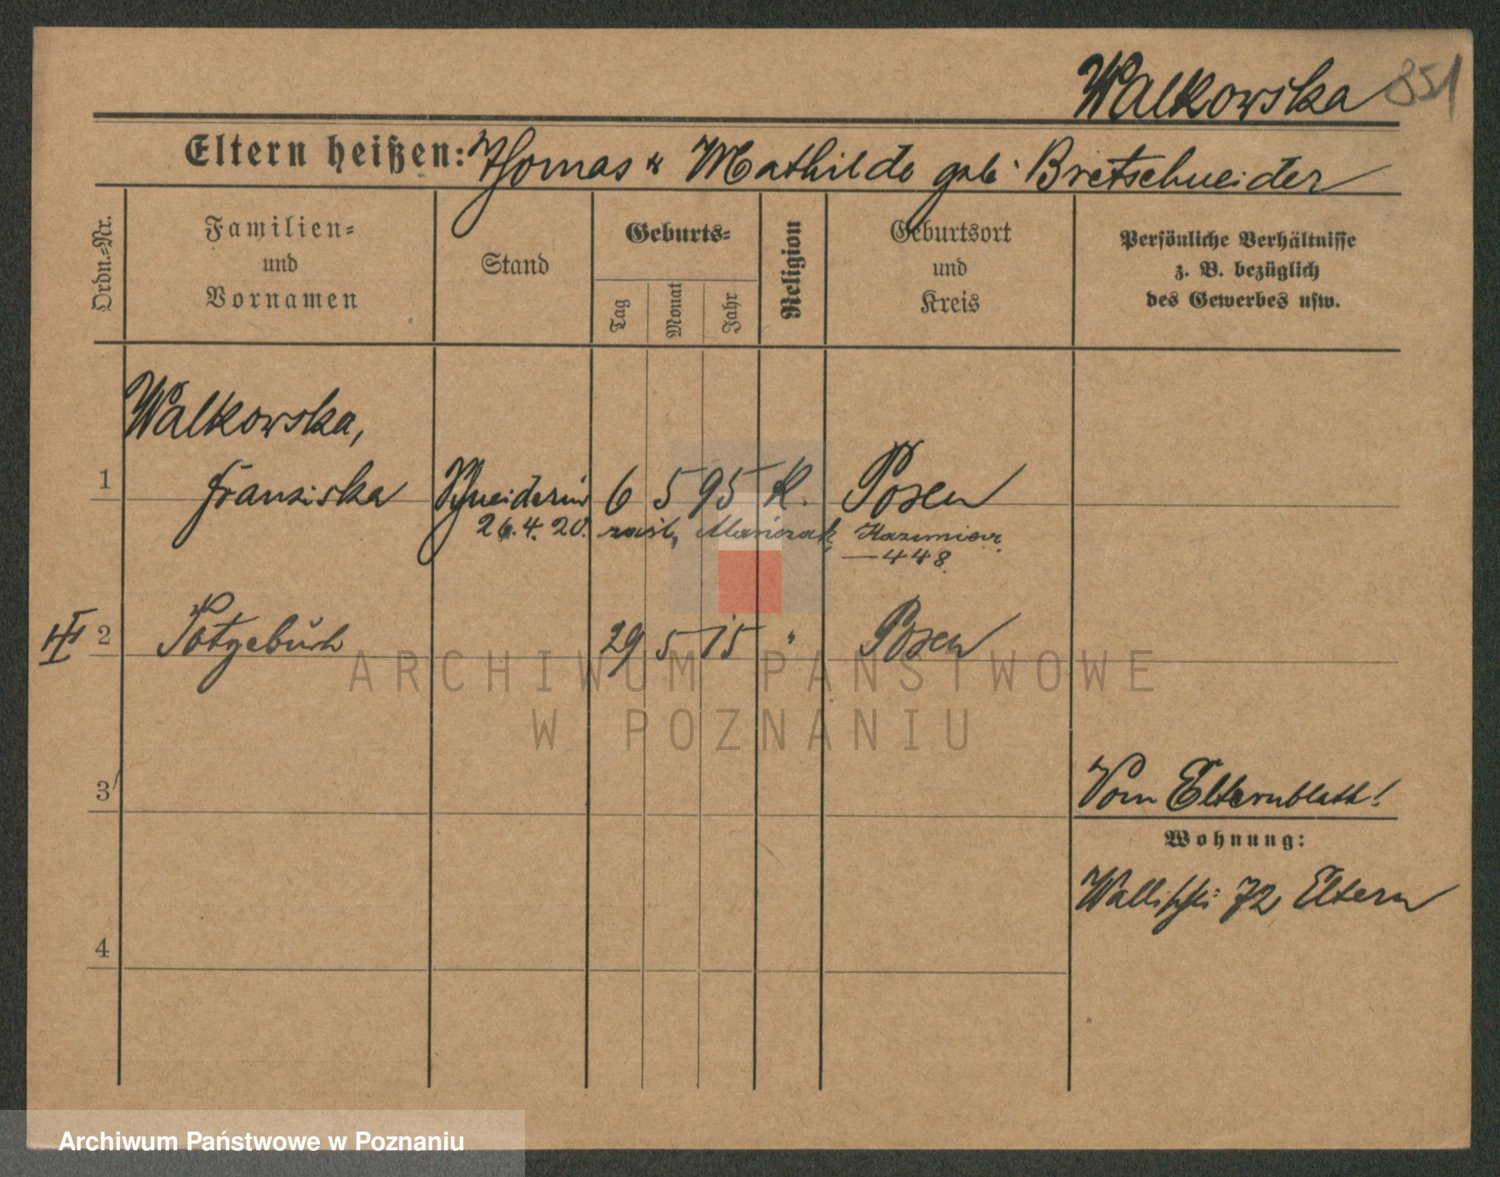 Walkowska 851
Eltern heißen: Thomas u Mathilde geb. Bretschneider
Ordn.-Nr.
Familien-
und
Vornamen
Stand
Geburts-
Tag
Monat
Jahr
Religion
Geburtsort
und
Kreis
Persönliche Verhältnisse
z. B. bezüglich
des Gewerbes usw.
Walkowska,
1 Franziska Schneiderin 6 5 95 K. Posen
26.4.20. Kazimierz
448
2 29 5 15 " Posen
ARCHIWUM PAŃSTWOWE
W POZNANIU
3
Vom Elternblatt!
Wohnung:
Wallischei 72 Eltern
4
Archiwum Państwowe w Poznaniu